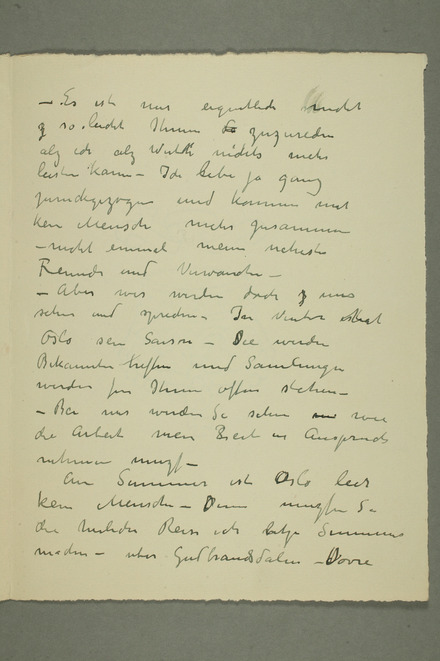 – Es ist mir eigentlich nicht
so leicht Ihnen zuzureden
alz ich alz Wirth nichts mehr
leisten kann – Ich lebe ja ganz
zurückgezogen und komme mit
kein Mensche mehr zusammen
– nicht einmal mein nehiste
Freunde und Verwandte –
– Aber wir werden doch z uns
sehen und sprechen – Im Vinter hat
Oslo sein Saison – Sie werden
Bekannten treffen und Samlungen
werden fur Ihnen offen stehen –
– Bei uns werden Se sehen wie
die Arbeit mein Zeit in Anspruch
nehmen muzs –
Am Sommer ist Oslo leer
kein Mensche – Dann muzsen Se
die herliche Reise ich letze Sommers
machen – uber Gudbrandsdalen – Dovre